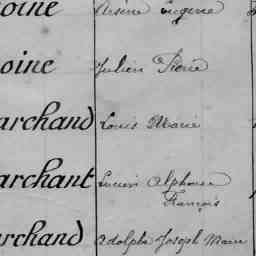 oine Arsène Eugène
oine Julien Pierre
archand Louis Marie
archant Lucien Alphonse
François
archand Adolphe Joseph Marie